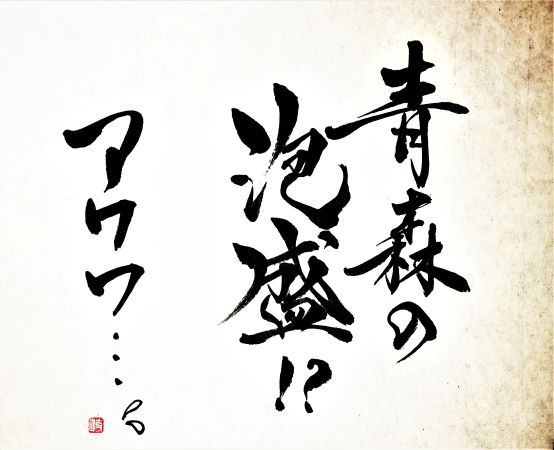 青森の
泡盛!?
アワワ…